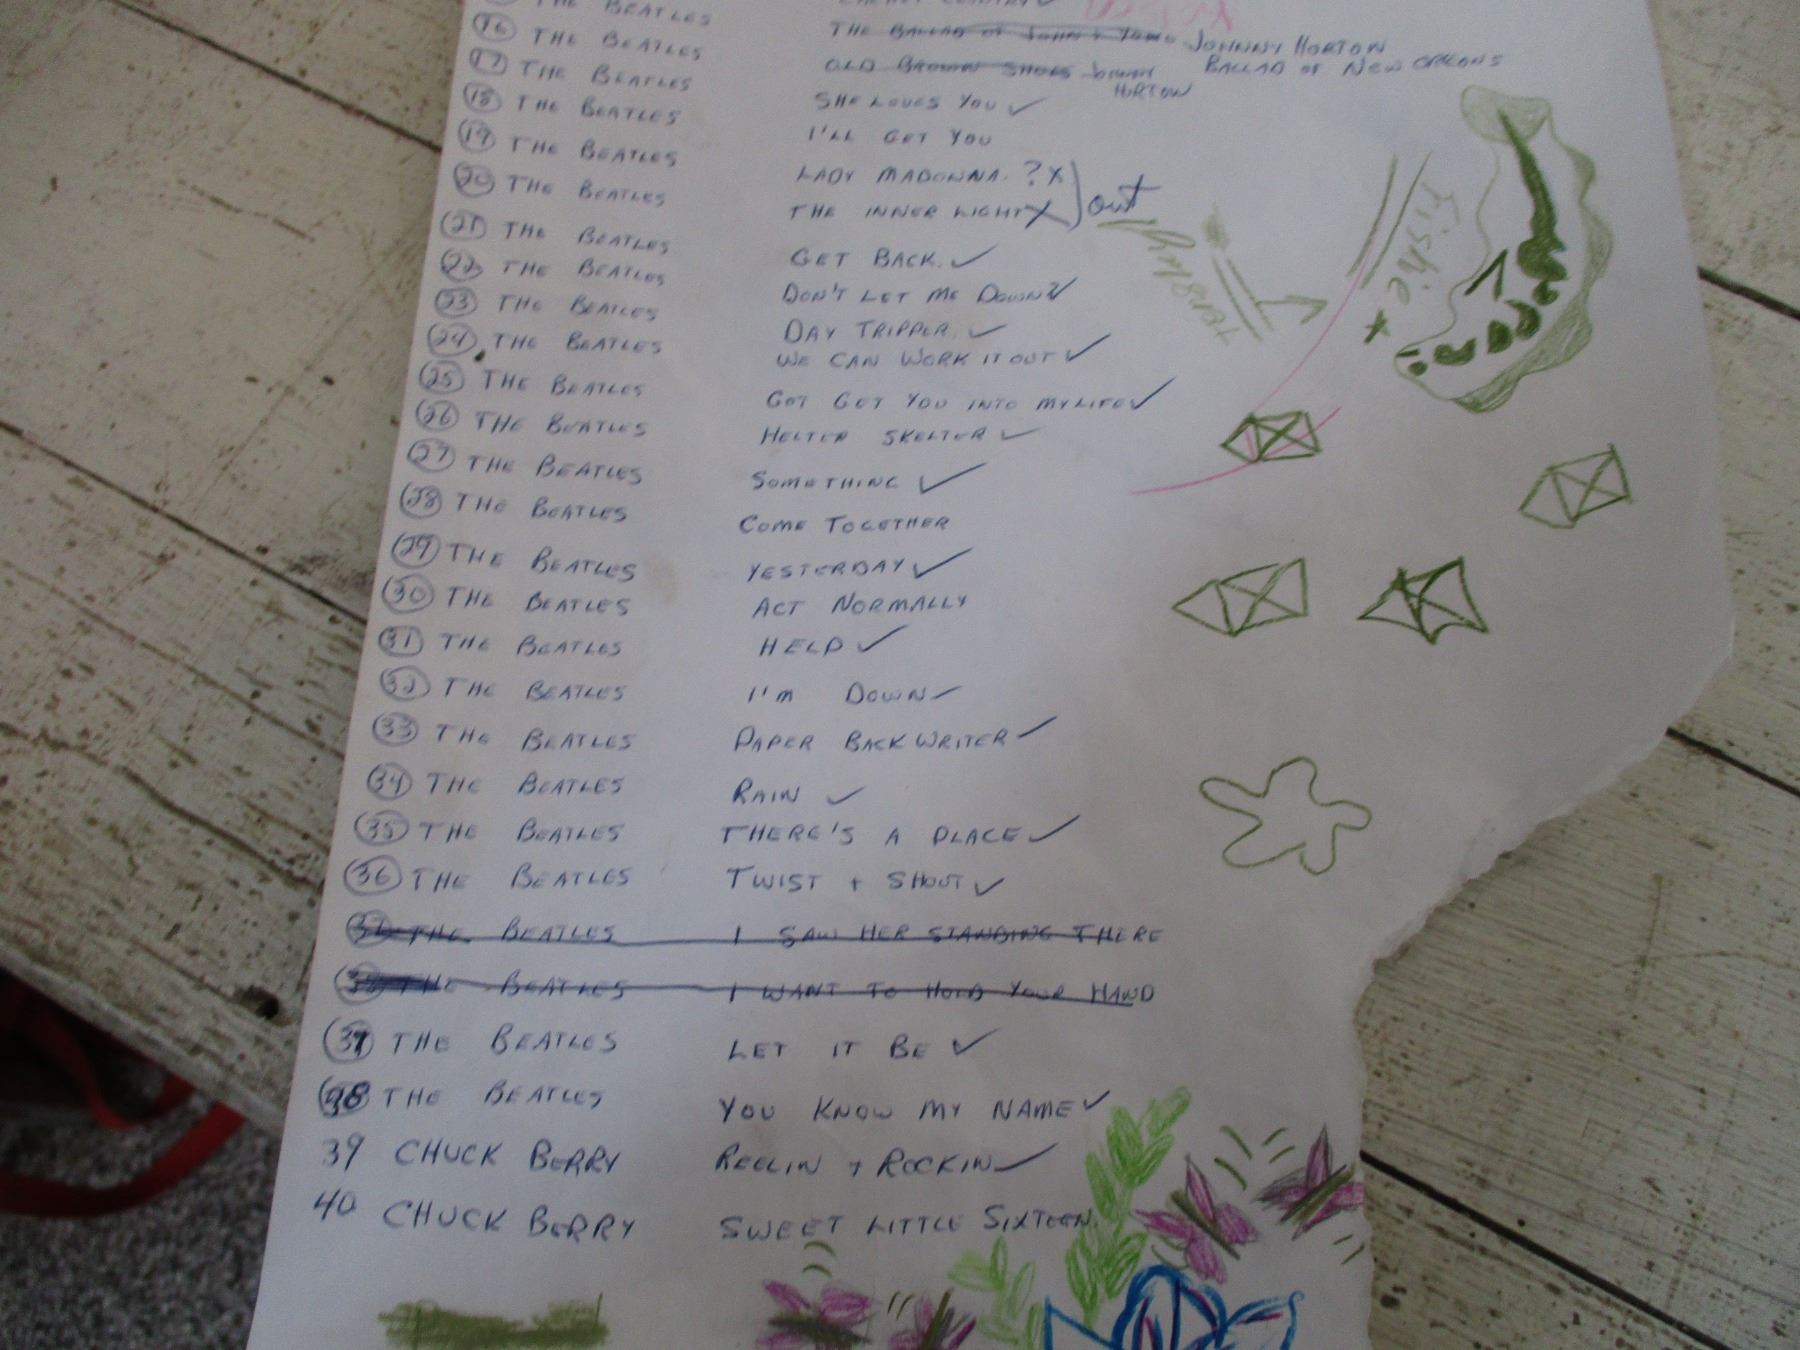 THE BEATLES COUNTRY ✓
16 THE BEATLES THE BALLAD OF JOHN & YOKO JOHNNY HORTON
BALLAD OF NEW ORLEANS
17 THE BEATLES OLD BROWN SHOES JOHNNY
HORTON
18 THE BEATLES SHE LOVES YOU ✓
19 THE BEATLES I'LL GET YOU
20 THE BEATLES LADY MADONNA ? X
out
21 THE BEATLES THE INNER LIGHT X
22 THE BEATLES GET BACK ✓
23 THE BEATLES DON'T LET ME DOWN ✓
24 THE BEATLES DAY TRIPPER ✓
25 THE BEATLES WE CAN WORK IT OUT ✓
26 THE BEATLES GOT GET YOU INTO MY LIFE ✓
27 THE BEATLES HELTER SKELTER ✓
28 THE BEATLES SOMETHING ✓
COME TOGETHER
29 THE BEATLES YESTERDAY ✓
30 THE BEATLES ACT NORMALLY
31 THE BEATLES HELP ✓
32 THE BEATLES I'M DOWN ✓
33 THE BEATLES PAPER BACK WRITER ✓
34 THE BEATLES RAIN ✓
35 THE BEATLES THERE'S A PLACE ✓
36 THE BEATLES TWIST + SHOUT ✓
37 THE BEATLES I SAW HER STANDING THERE
38 THE BEATLES I WANT TO HOLD YOUR HAND
37 THE BEATLES LET IT BE ✓
38 THE BEATLES YOU KNOW MY NAME ✓
39 CHUCK BERRY REELIN + ROCKIN ✓
40 CHUCK BERRY SWEET LITTLE SIXTEEN.
Fishie